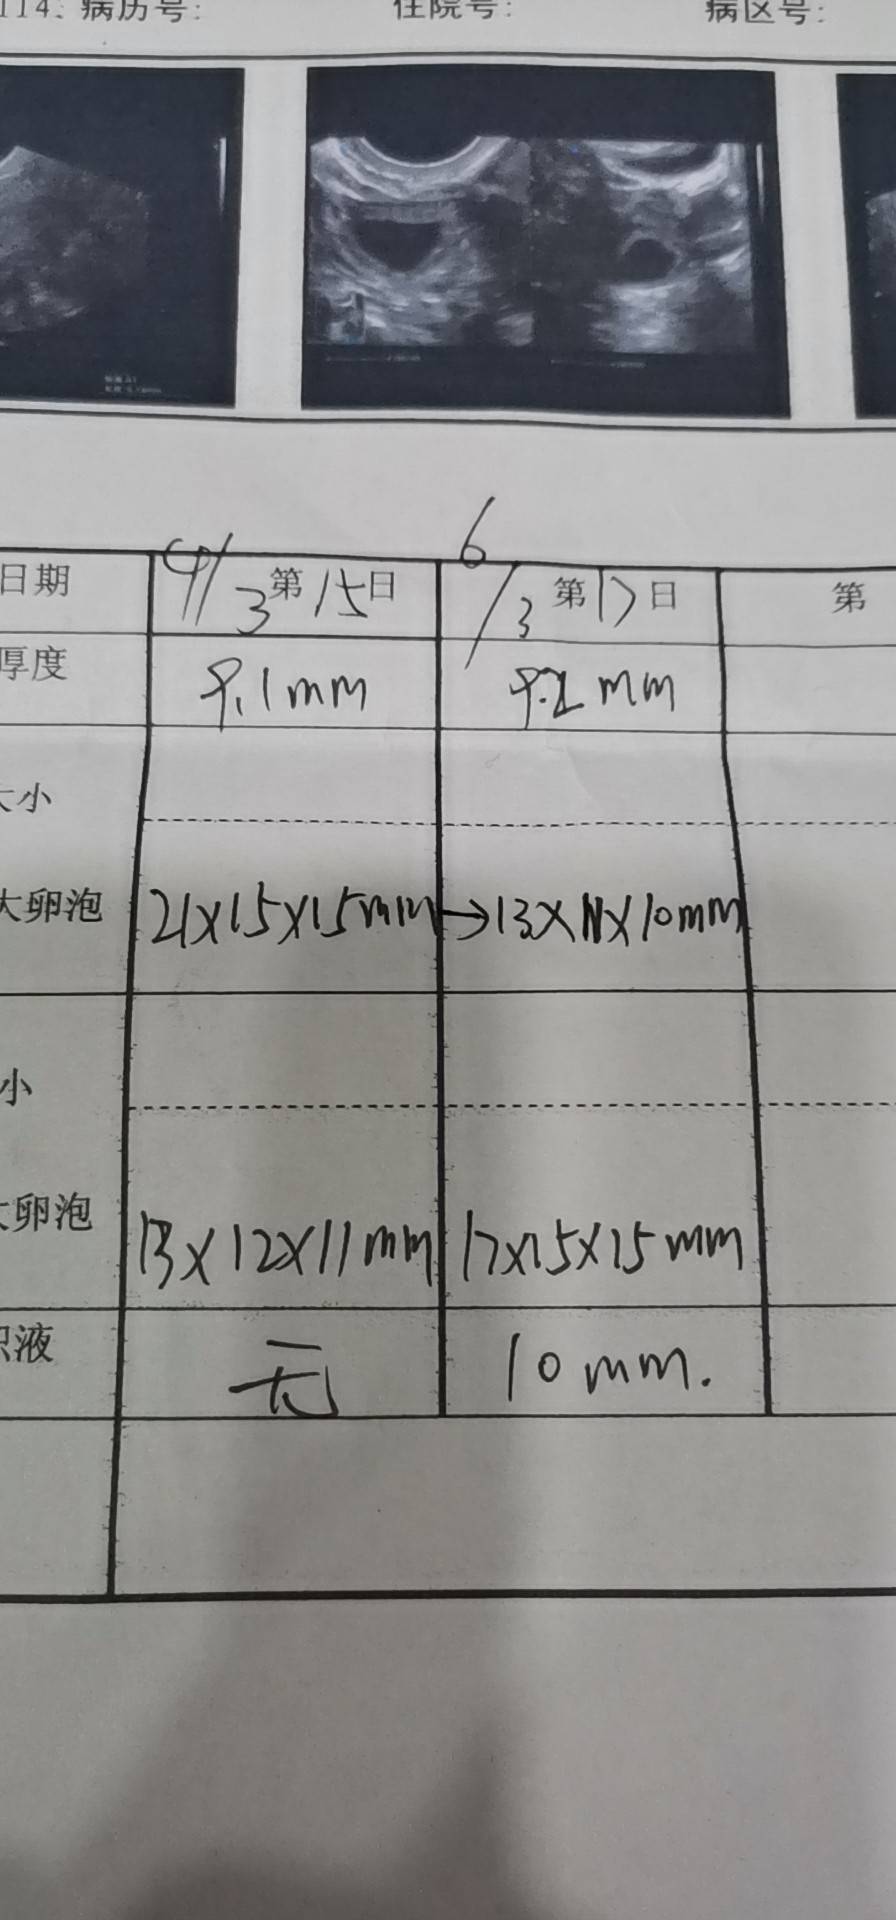 114: 病历号: 住院号: 病区号:
日期 4/3 第15日 6/3 第17日 第
厚度 9.1mm 9.2mm
大小
大卵泡 21×15×15mm →13×11×10mm
小
大卵泡 13×12×11mm 17×15×15mm
积液 无 10mm.